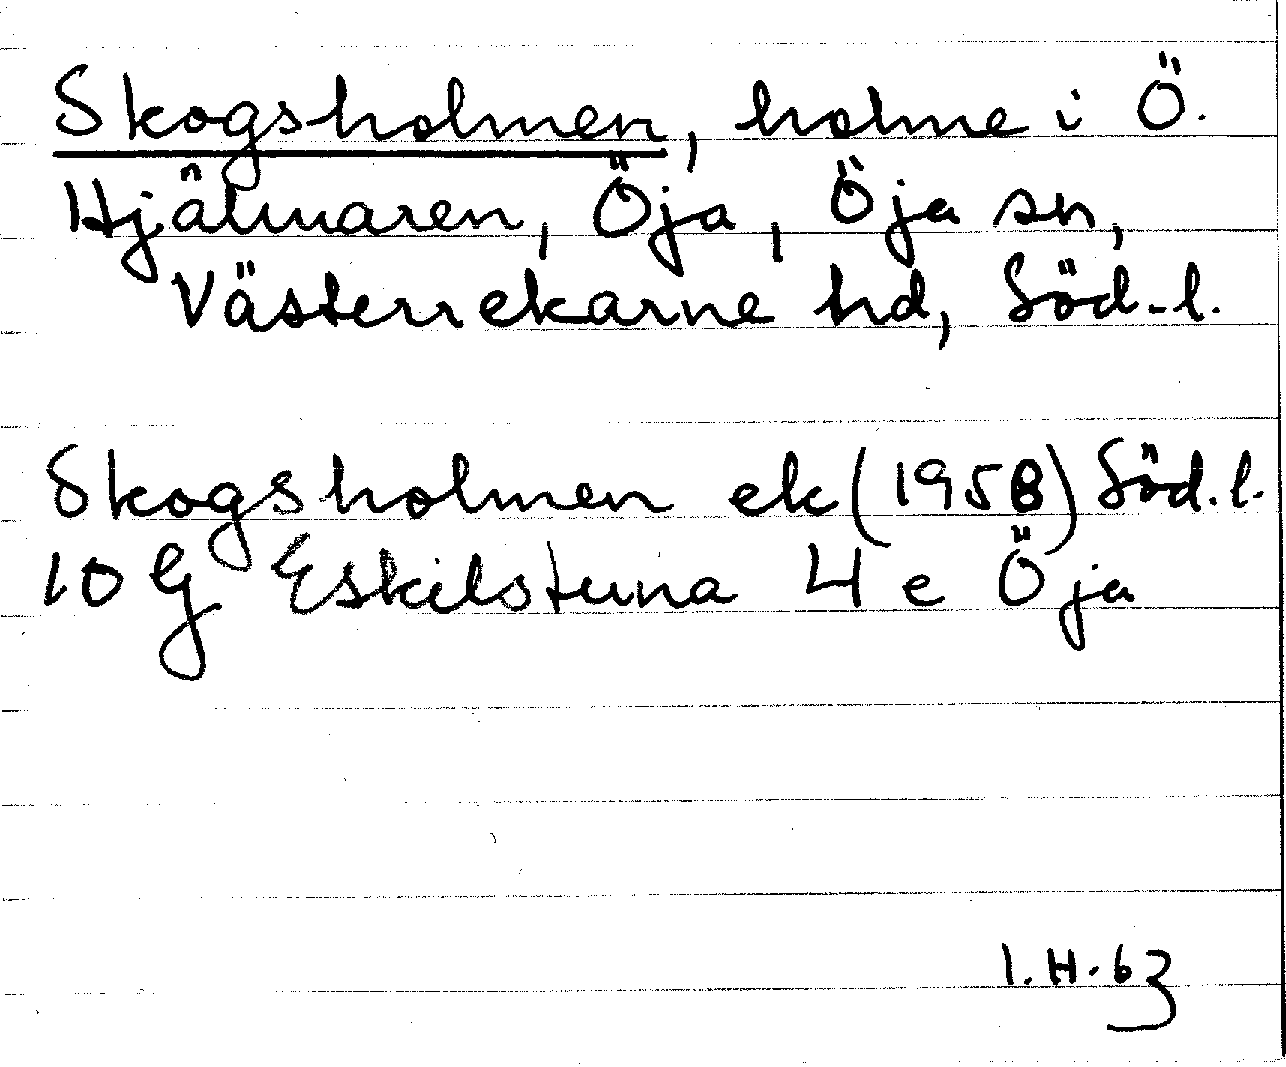 Skogsholmen, holme i Ö.
Hjälmaren, Öja, Öja sn,
Västerrekarne hd, Söd-l.
Skogsholmen ek (1958) Söd.l.
10 G Eskilstuna 4 e Öja
I.H.63